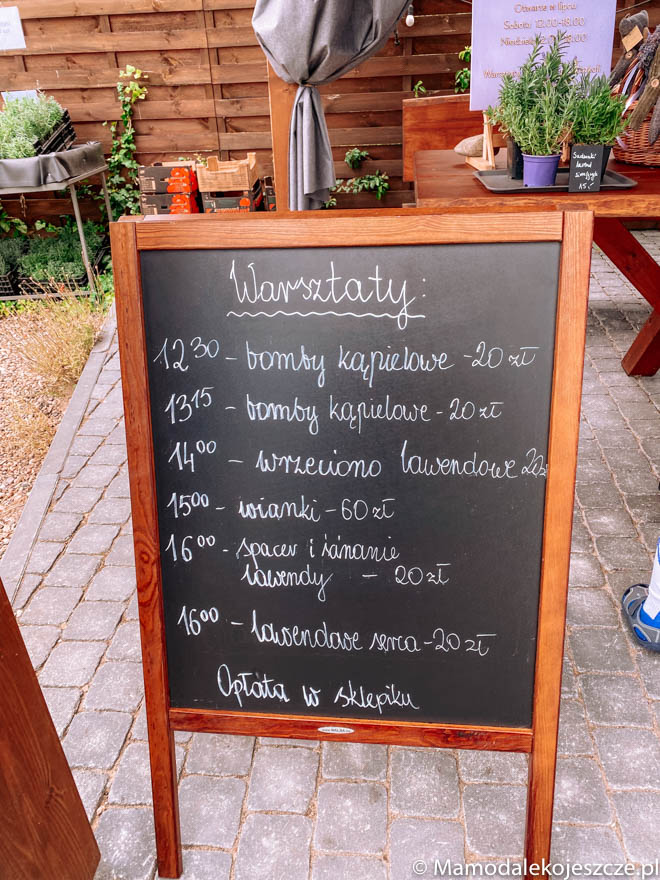 Otwarte w lipcu
Soboty 12.00-18.00
Warsztaty:
12³⁰ - bomby kąpielowe - 20 zł
13¹⁵ - bomby kąpielowe - 20 zł
14⁰⁰ - wrzeciono lawendowe 20zł
15⁰⁰ - wianki - 60 zł
16⁰⁰ - spacer i żánanie
lawendy - 20 zł
16⁰⁰ - lawendowe serca - 20 zł
Opłata w sklepiku
© Mamodalekojeszcze.pl